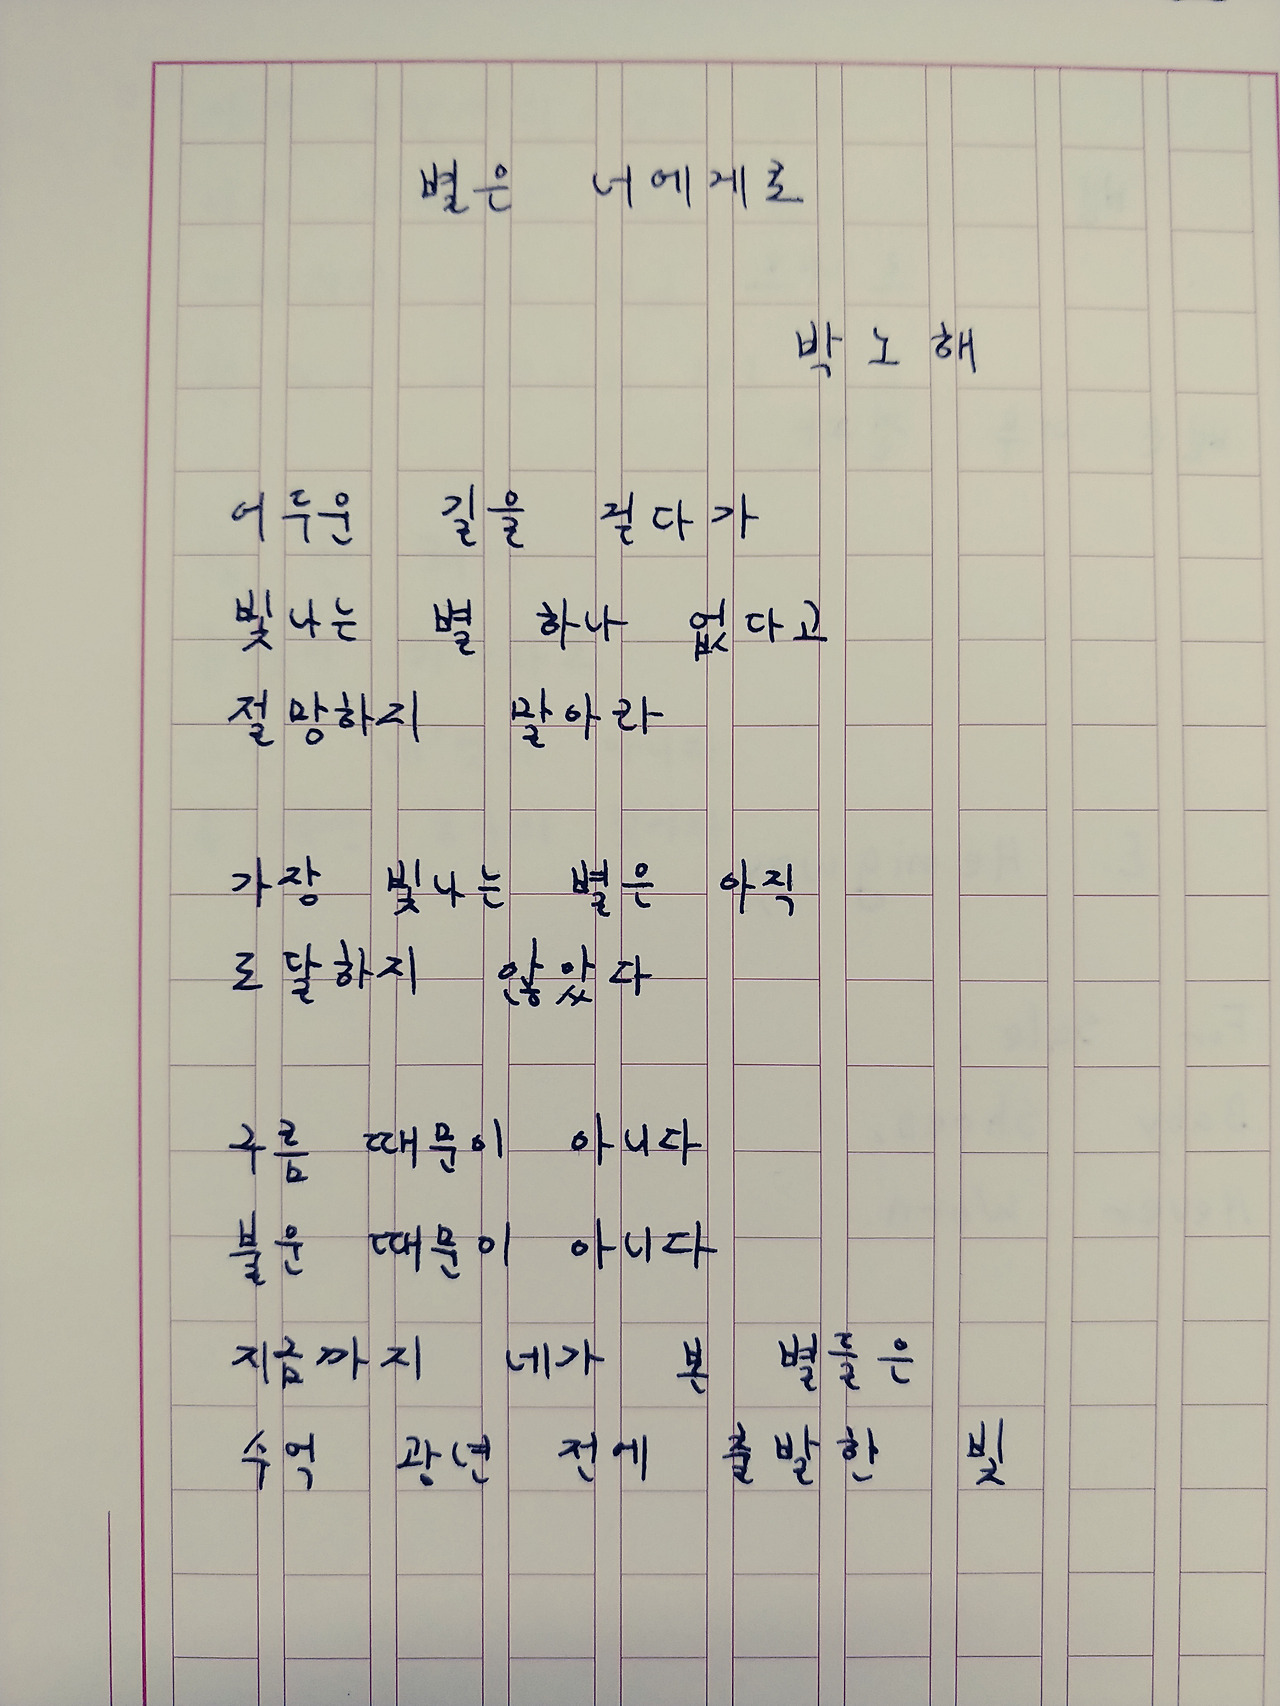 별은 너에게로
박노해
어두운 길을 걷다가
빛나는 별 하나 없다고
절망하지 말아라
가장 빛나는 별은 아직
도달하지 않았다
구름 때문이 아니다
불운 때문이 아니다
지금까지 네가 본 별들은
수억 광년 전에 출발한 빛